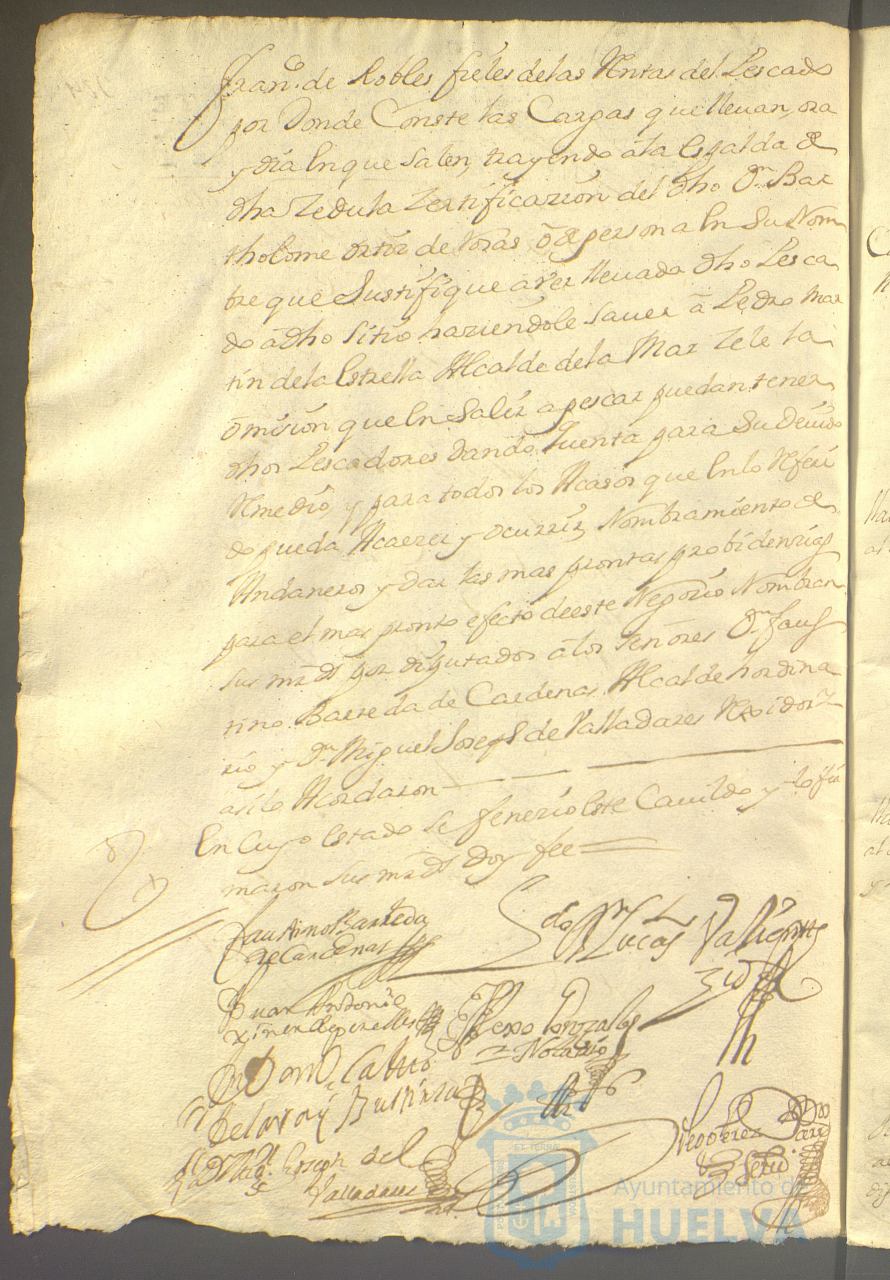 Fran.co de Robles fieles de las Rentas del Pescado
por donde Conste las Cargas que lleuan, ora
y dia En que salen, trayendo â la Espalda de
dha Zedula Zertificazion del dho Dn Bar
tholome ortiz de ô de persona En Su Nom
bre que Justifique aver lleuado dho Pesca
do â dho Sitio haziendole sauer â Pedro Mar
tin de la Estrella Alcalde de la Mar Zele la
ômision que En Salir a pescar puedan tener
dhos Pescadores dando quenta para Su Deuido
Remedio y para todos los Acasos que En lo Referi
do pueda Acaezer y ocurrir Nombramiento de
Andaneros y dar las mas prontas probidenzias
para el mas pronto efecto de este Negozio Nombran
sus mrds por diputados â los Señores Dn faus
tino Barreda de Cardenas Alcalde hordina
rio y Dn Miguel Joseph de Valladares Rexidor
asi lo Acordaron
En Cuyo estado se fenezio Este Cauildo y lo fir
maron sus mrds doy fee
Faustino Barreda
de Cardenas
Lucas Valiente
Juan Antonio
Pedro Gonzales
Notario
Dn Miguel Joseph del
Valladares
Diego Perez
Ayuntamiento de
HUELVA